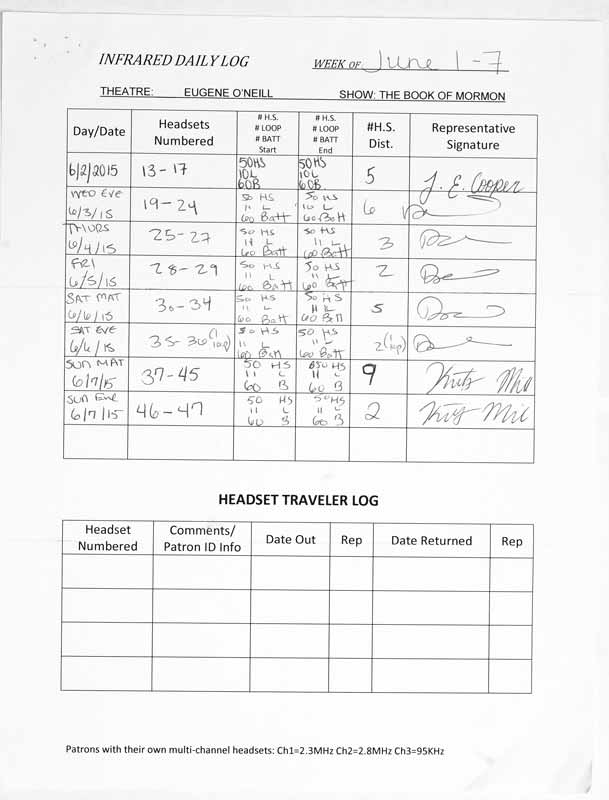 INFRARED DAILY LOG WEEK OF June 1-7
THEATRE: EUGENE O'NEILL SHOW: THE BOOK OF MORMON
Day/Date Headsets Numbered # H.S. # LOOP # BATT Start # H.S. # LOOP # BATT End #H.S. Dist. Representative Signature
6/2/2015 13-17 50HS 10L 60B 50HS 10L 60B. 5 J. E. Cooper
WED EVE 6/3/15 19-24 50 HS 11 L 60 Batt 50 HS 10 L 60 Batt 6
THURS 6/4/15 25-27 50 HS 11 L 60 Batt 50 HS 11 L 60 Batt 3
FRI 6/5/15 28-29 50 HS 11 L 60 Batt 50 HS 11 L 60 Batt 2
SAT MAT 6/6/15 30-34 50 HS 11 L 60 Batt 50 HS 11 L 60 Batt 5
SAT EVE 6/6/15 35-36 (1 loop) 50 HS 11 L 60 Batt 50 HS 11 L 60 Batt 2 (1 loop)
SUN MAT 6/7/15 37-45 50 HS 11 L 60 B 50 HS 11 L 60 B 9
SUN EVE 6/7/15 46-47 50 HS 11 L 60 B 50 HS 11 L 60 B 2
HEADSET TRAVELER LOG
Headset Numbered Comments/ Patron ID Info Date Out Rep Date Returned Rep
Patrons with their own multi-channel headsets: Ch1=2.3MHz Ch2=2.8MHz Ch3=95KHz